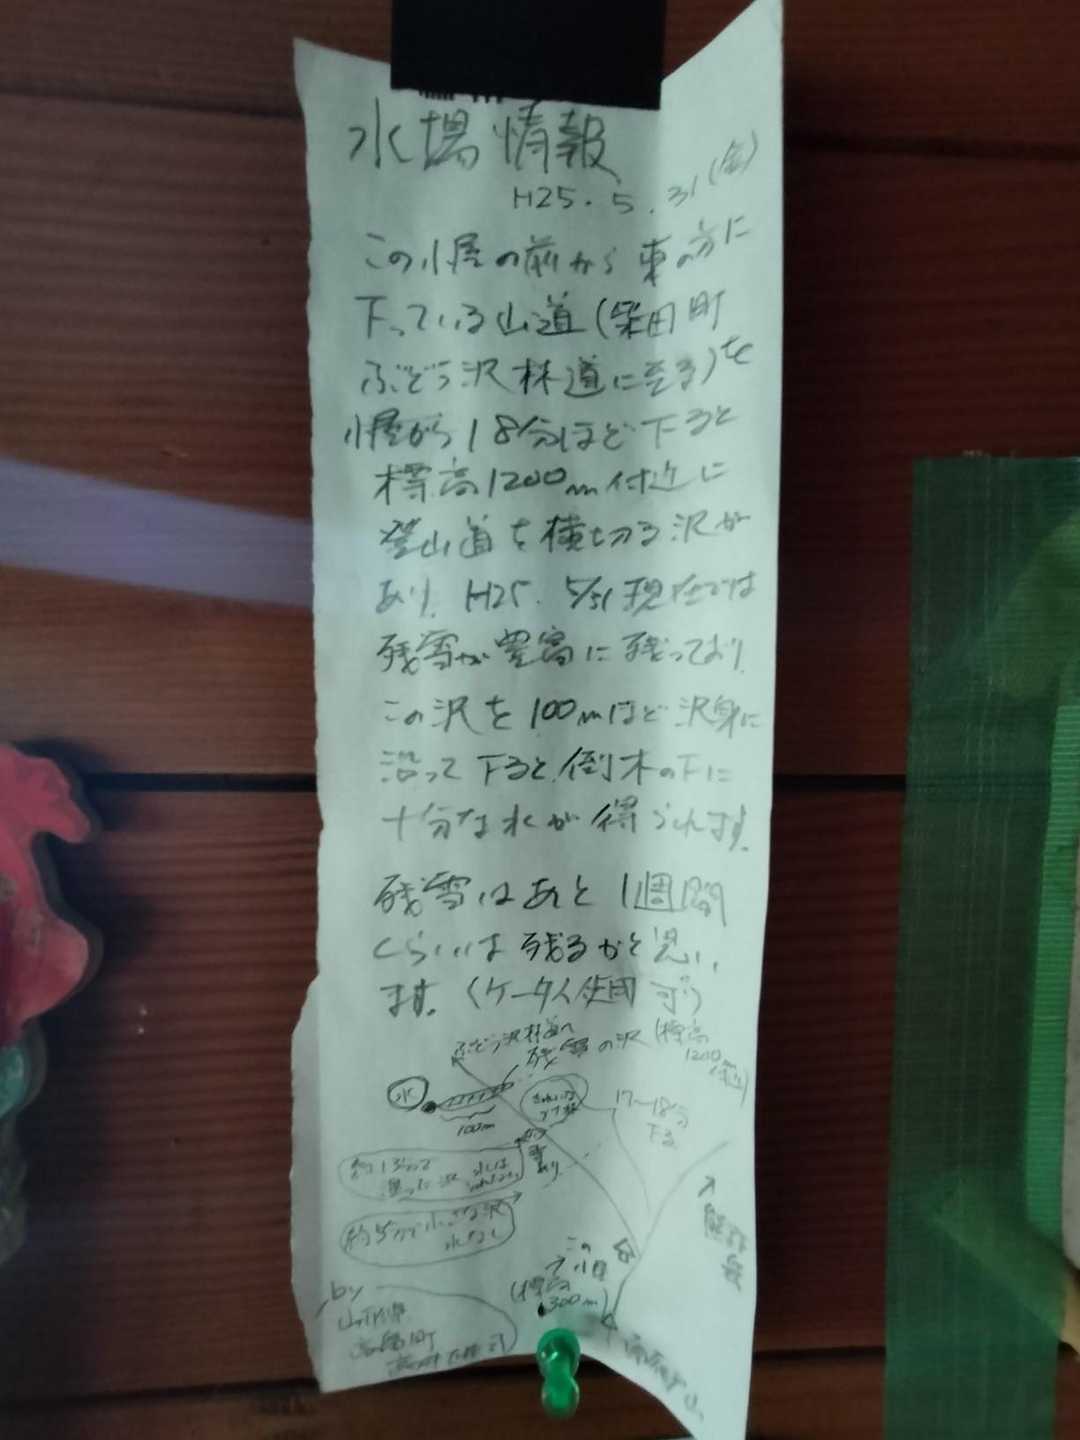 水場情報
H25.5.31(金)
この小屋の前から東の方に
下っている山道(柴田町
ぶどう沢林道に至る)を
小屋から18分ほど下ると
標高1200m付近に
登山道を横切る沢が
あり、H25.5/31現在では
残雪が豊富に残っており
この沢を100mほど沢身に
沿って下ると、倒木の下に
十分な水が得られます。
残雪はあと1週間
くらいは残るかと思い
ます。(ケータイ使用可)
ぶどう沢林道へ
残雪の沢(標高
1200m付近)
水
100m
17〜18分
下る
約5分で小さな沢
水なし
この
小屋
(標高
1300m)
by
山形県
高畠町